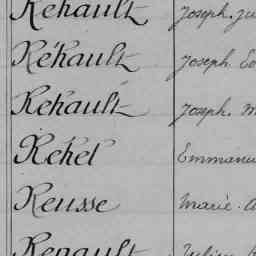 Rehault Joseph. Ju
Réhault Joseph. Ed
Rehault Joseph. M
Rehel Emmanu
Reusse Marie. A
Renault Julien